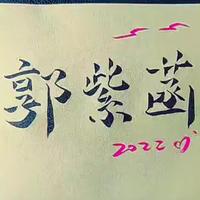 郭紫菡
2022